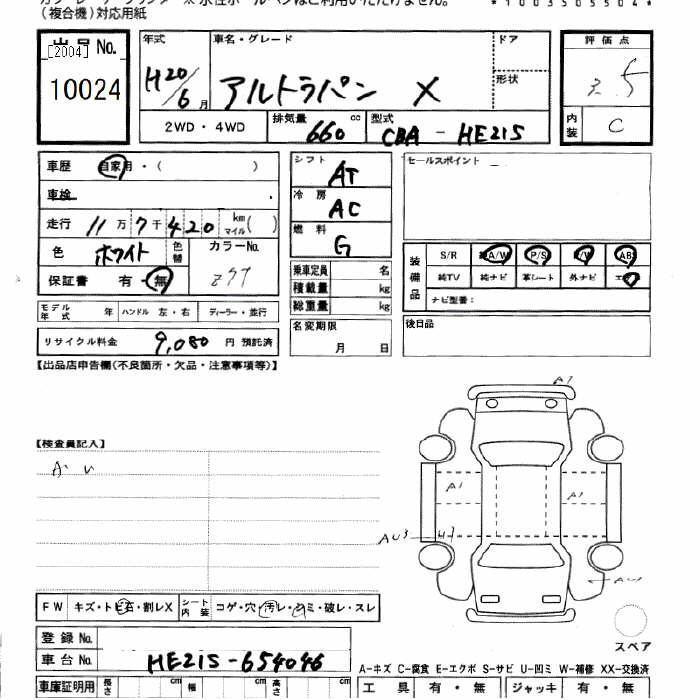 (複合機)対応用紙
*1003505504*
出品No.
[2004]
10024
年式 H20/6月
車名・グレード アルトラパン X
ドア
形状
評価点 3.5
内装 C
2WD・4WD
排気量 660 cc
型式 CBA-HE21S
車歴 自家用・( )
車検
走行 11万7千420 km マイル( )
色 ホワイト 色替
カラーNo. Z7T
保証書 有・無
シフト AT
冷房 AC
燃料 G
セールスポイント
乗車定員 名
積載量 kg
総重量 kg
名変期限
月 日
装備品 S/R A/W P/S P/W AB
純TV 純ナビ 革シート 外ナビ
ナビ型番:
後日品
モデル年式 年 ハンドル 左・右 ディーラー・並行
リサイクル料金 9,080 円 預託済
【出品店申告欄(不良箇所・欠品・注意事項等)】
【検査員記入】
A U
A1
A1
A1
AU3
FW キズ・トビ石・割レX シート内装 コゲ・穴・汚レ・シミ・破レ・スレ
スペア
登録No.
車台No. HE21S-654046
A-キズ C-腐食 E-エクボ S-サビ U-凹ミ W-補修 XX-交換済
車庫証明用 長さ cm 幅 cm 高さ cm
工具 有・無 ジャッキ 有・無